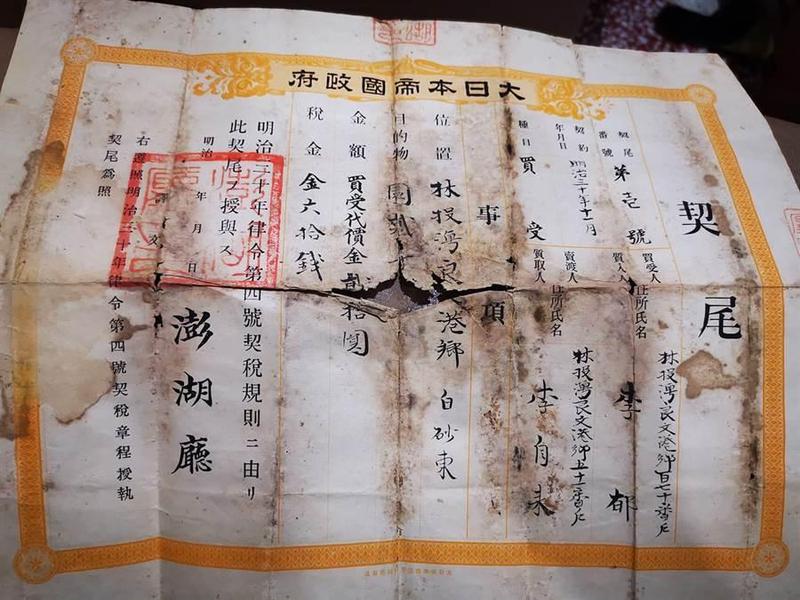 大日本帝國政府
契尾
契尾番號 第壱號
契約年月日 明治三十年十一月
種目 買受
買受人
質入人
住所氏名
林投灣良文港鄉百七十番戶
李郁
賣渡人
質取人
住所氏名
林投灣良文港鄉五十一番戶
李自未
事項
位置 林投灣良 港鄉 白砂東
目的物 園
金額 買受代價金貳拾圓
稅金 金六拾錢
明治三十年律令第四號契稅規則ニ由リ
此契尾ヲ授與ス
明治 年 月 日
澎湖廳
譯文
右遵照明治三十年律令第四號契稅章程授執
契尾爲照